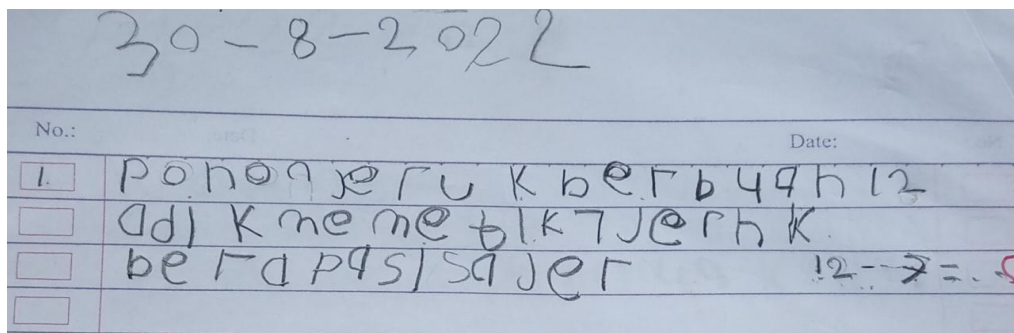 30-8-2022
No.: Date:
1. ponon jeruk berbyah 12
adik mememtik 7 jerhk
berapa sisa jer 12-7=.5